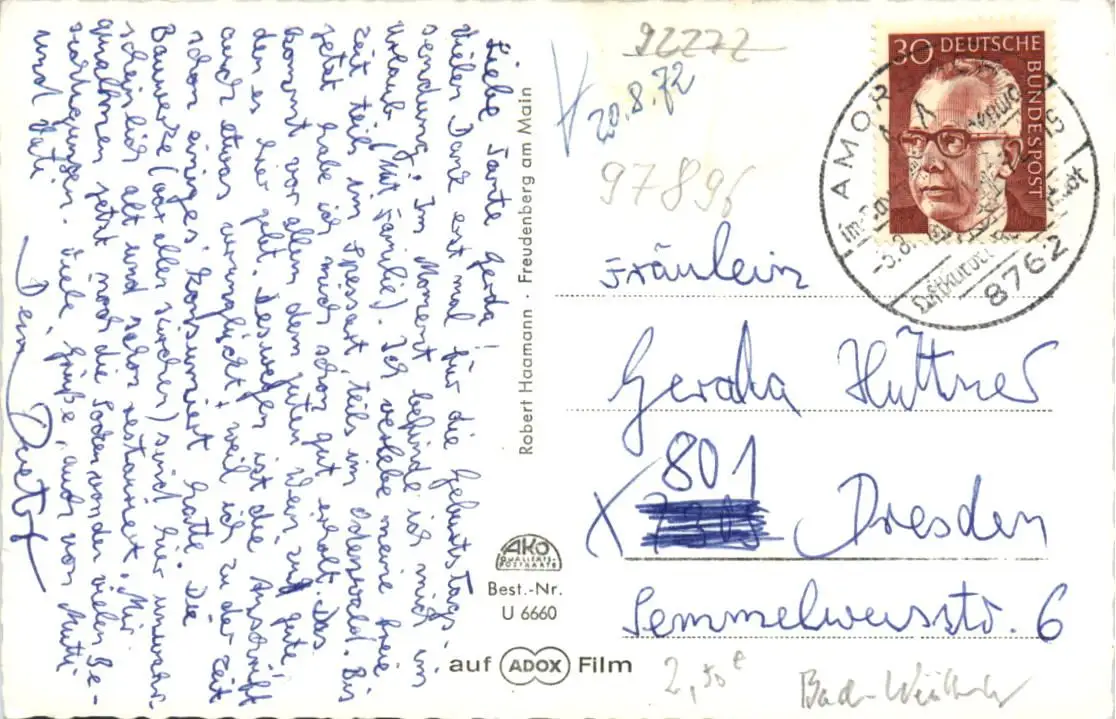 Liebe Tante Gerda!
Vielen Dank erst mal für die Geburtstags-
sendung. Im Moment befinde ich mich im
Urlaub (Mit Familie). Ich verlebe meine freie
Zeit teils im Spessart, teils im Odenwald. Bis
jetzt habe ich mich schon gut erholt. Das
kommt vor allem dem guten Wein zu gute
den es hier gibt. Deswegen ist die Anschrift
auch etwas verunglückt, weil ich zu der Zeit
schon einiges konsumiert hatte. Die
Bauwerke (vor allem Kirchen) sind hier unwahr-
scheinlich alt und schon restauriert. Mir
qualmen jetzt noch die Socken von den vielen Be-
sichtigungen. Viele Grüße, auch von Mutti
und Vati
Dein
Robert Haamann · Freudenberg am Main
AKO
QUALITÄTS-
POSTKARTE
Best.-Nr.
U 6660
auf ADOX Film
92272
20.8.72
97896
30 DEUTSCHE
BUNDESPOST
AMORBACH
Luftkurort
8762
Fräulein
Gerda Hüttner
801
X Dresden
Semmelweisstr. 6
2,50 €